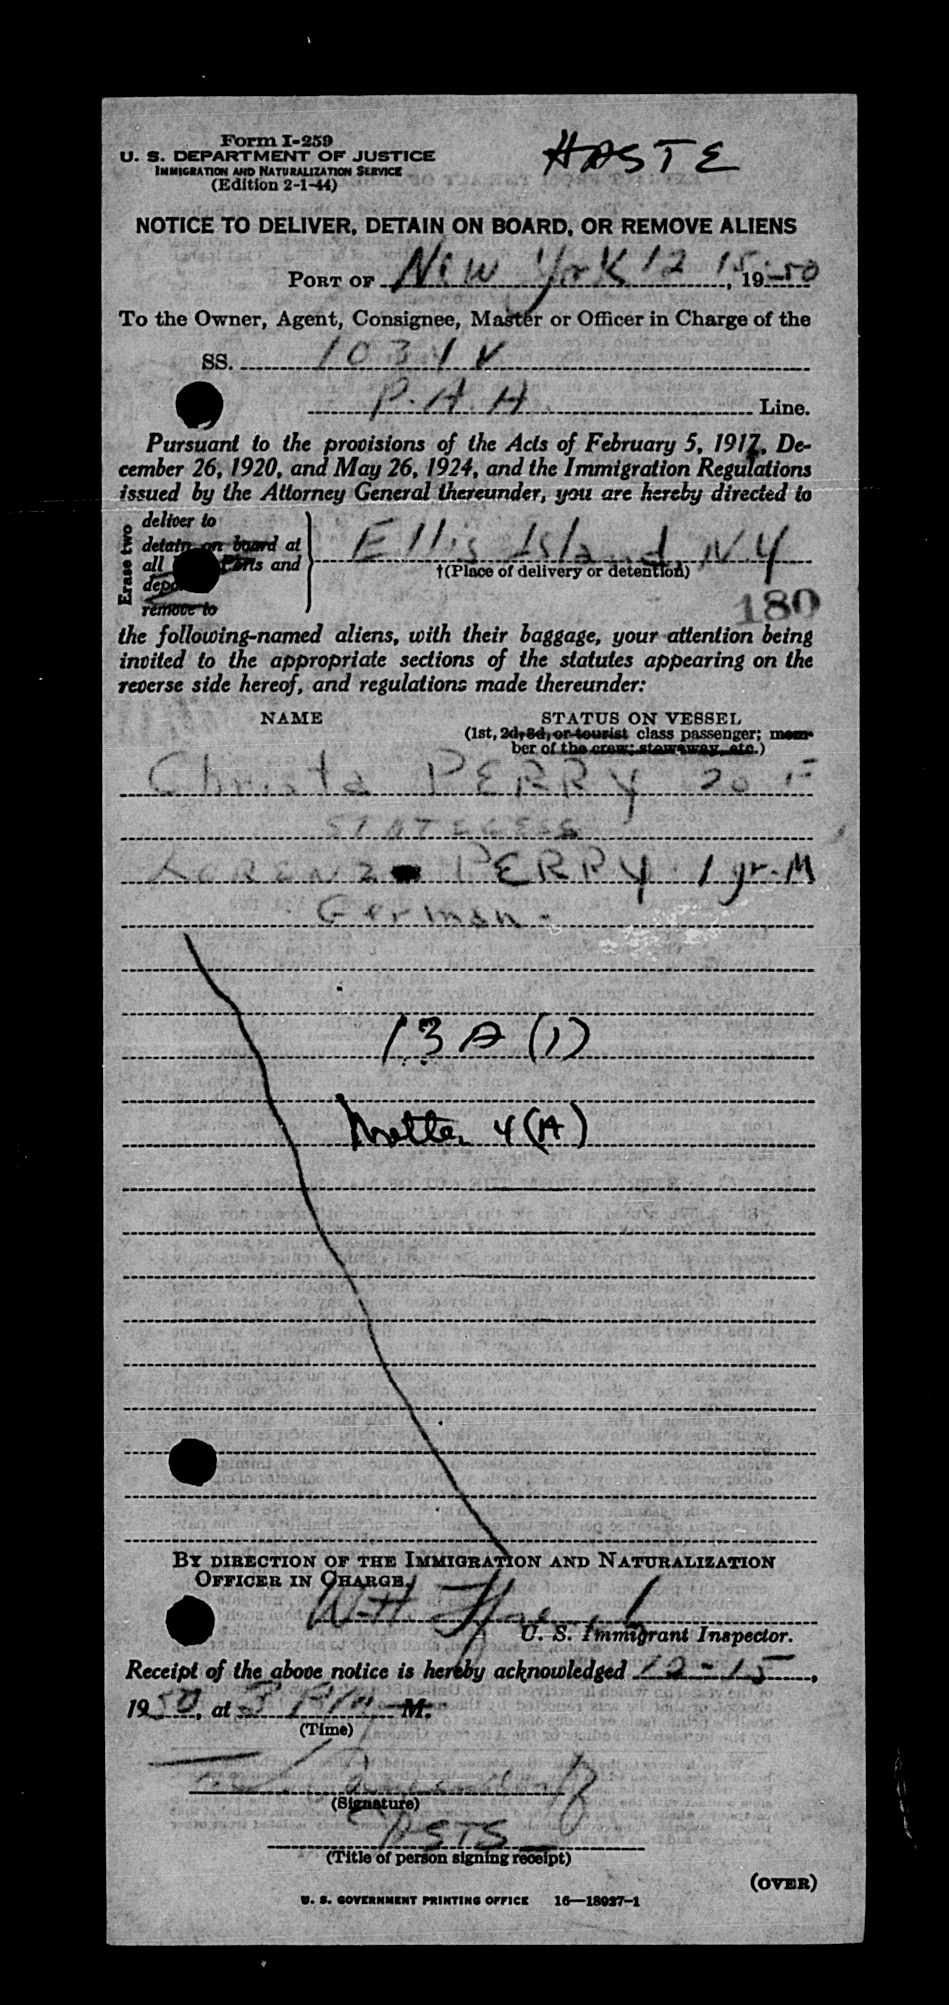 Form I-259
HASTE
U. S. DEPARTMENT OF JUSTICE
IMMIGRATION AND NATURALIZATION SERVICE
(Edition 2-1-44)
NOTICE TO DELIVER, DETAIN ON BOARD, OR REMOVE ALIENS
PORT OF New York 12 15, 19 50
To the Owner, Agent, Consignee, Master or Officer in Charge of the
SS. 103 Y V
P.A.A. Line.
Pursuant to the provisions of the Acts of February 5, 1917, De-
cember 26, 1920, and May 26, 1924, and the Immigration Regulations
issued by the Attorney General thereunder, you are hereby directed to
Erase two
deliver to
detain on board at
all Ports and
remove to
Ellis Island, N.Y
†(Place of delivery or detention)
180
the following-named aliens, with their baggage, your attention being
invited to the appropriate sections of the statutes appearing on the
reverse side hereof, and regulations made thereunder:
NAME STATUS ON VESSEL
(1st, 2d, 3d, or tourist class passenger; mem-
ber of the crew; stowaway, etc.)
Christa PERRY 20 F
STATELESS
LORENZ PERRY 1 yr. M
German -
13 A (1)
Matter 4 (A)
BY DIRECTION OF THE IMMIGRATION AND NATURALIZATION
OFFICER IN CHARGE.
W H
U. S. Immigrant Inspector.
Receipt of the above notice is hereby acknowledged 12-15,
1950, at 3 P.M. M.
(Time)
(Signature)
(Title of person signing receipt)
(OVER)
U. S. GOVERNMENT PRINTING OFFICE 16—18927-1